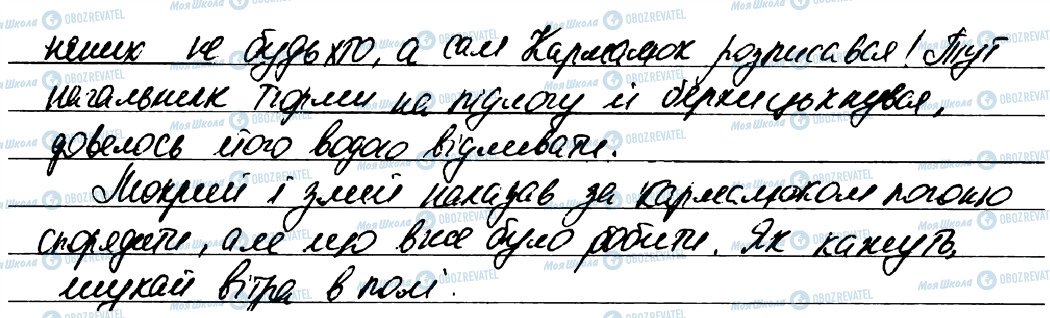 неших не будь хто, а сам Кармалюк розписався! Тут
начальник тюрми на підлогу й беркицькнувся,
довелось його водою відливати.
Мокрий і злий наказав за Кармалюком погоню
спорядити, але що вже було робити. Як кажуть,
шукай вітра в полі.